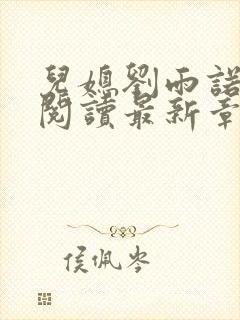 兒媳劉雨諾
閱讀最新章
侯佩岑